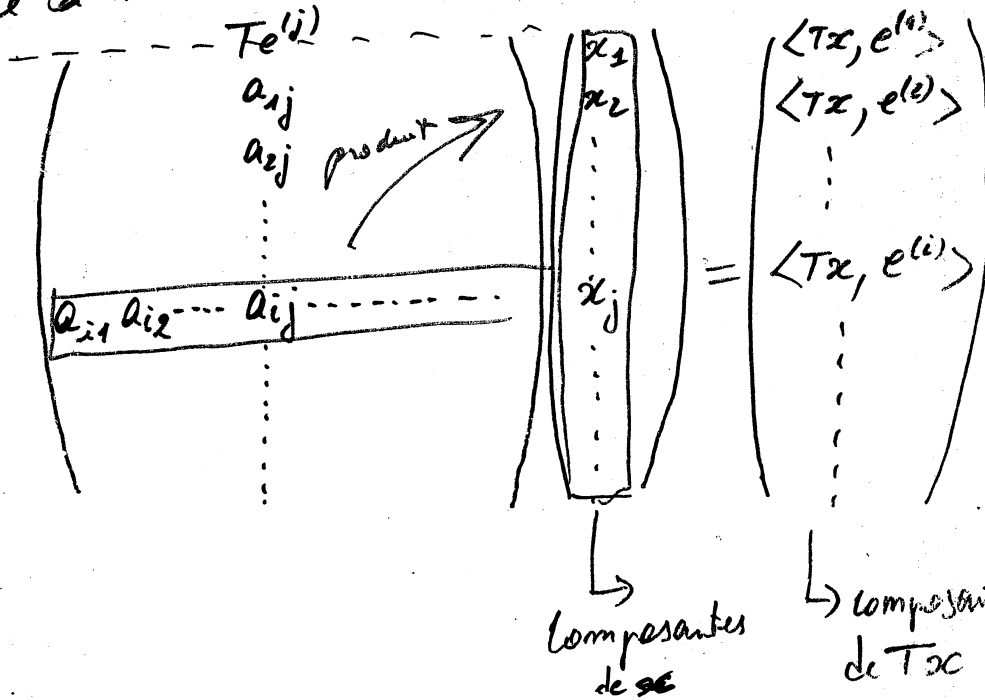 Te^{(j)}
a_{1j}
a_{2j}
produit
a_{i1} a_{i2} ---- a_{ij} - - - - - - -
x_1
x_2
x_j
=
<Tx, e^{(1)}>
<Tx, e^{(2)}>
<Tx, e^{(i)}>
Composantes
de x
de Tx